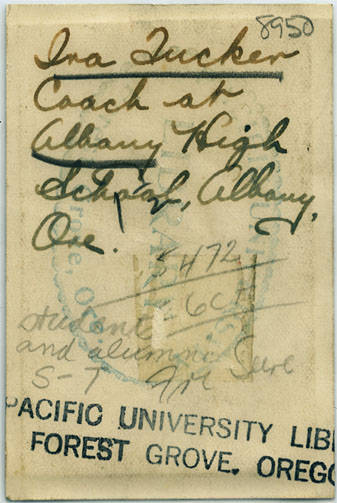 8950
Ira Tucker
Coach at
Albany High
School, Albany,
Ore.
5472
6ct
student
and alumni
S-T
PACIFIC UNIVERSITY LIB
FOREST GROVE, OREGO